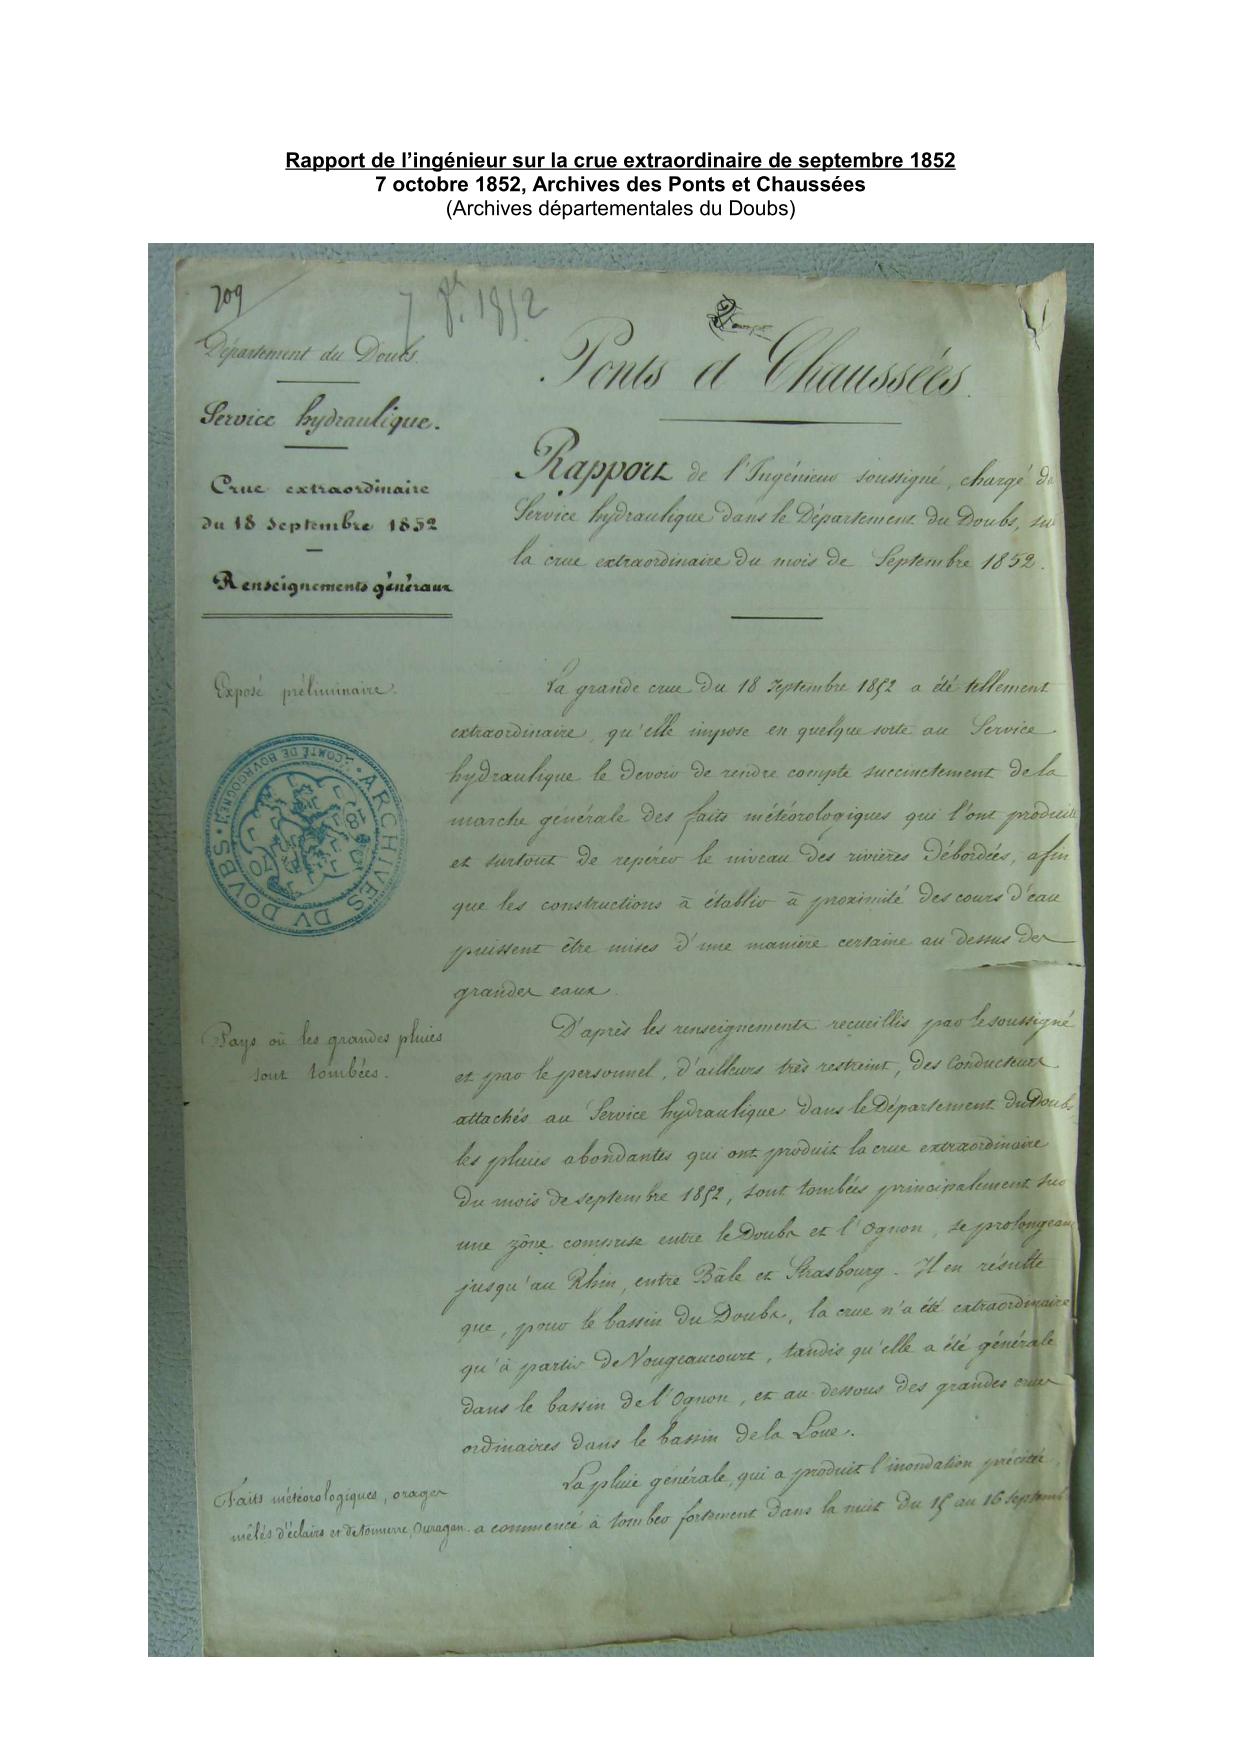 Rapport de l’ingénieur sur la crue extraordinaire de septembre 1852
7 octobre 1852, Archives des Ponts et Chaussées
(Archives départementales du Doubs)
709
7 8.bre 1852
Département du Doubs.
Service hydraulique.
Crue extraordinaire
du 18 Septembre 1852
Renseignements généraux
Ponts et Chaussées.
Rapport de l'Ingénieur soussigné, chargé du
Service hydraulique dans le Département du Doubs, sur
la crue extraordinaire du mois de Septembre 1852.
Exposé préliminaire.
La grande crue du 18 Septembre 1852 a été tellement
extraordinaire, qu'elle impose en quelque sorte au Service
hydraulique le devoir de rendre compte succinctement de la
marche générale des faits météorologiques qui l'ont produite
et surtout de repérer le niveau des rivières débordées, afin
que les constructions à établir à proximité des cours d'eau
puissent être mises d'une manière certaine au dessus des
grandes eaux.
ARCHIVES DV DOVBS
(COMTÉ DE BOVRGOGNE)
1870
Pays où les grandes pluies
sont tombées.
D'après les renseignements recueillis par le soussigné
et par le personnel, d'ailleurs très restreint, des Conducteurs
attachés au Service hydraulique dans le Département du Doubs
les pluies abondantes qui ont produit la crue extraordinaire
du mois de septembre 1852, sont tombées principalement sur
une zône comprise entre le Doubs et l'Ognon, se prolongeant
jusqu'au Rhin, entre Bâle et Strasbourg. Il en résulte
que, pour le bassin du Doubs, la crue n'a été extraordinaire
qu'à partir de Vougeaucourt, tandis qu'elle a été générale
dans le bassin de l'Ognon, et au-dessous des grandes crues
ordinaires dans le bassin de la Loue.
Faits météorologiques, orages
mêlés d'éclairs et de tonnerre, Ouragan.
La pluie générale, qui a produit l'inondation précitée,
a commencé à tomber fortement dans la nuit du 15 au 16 septembre